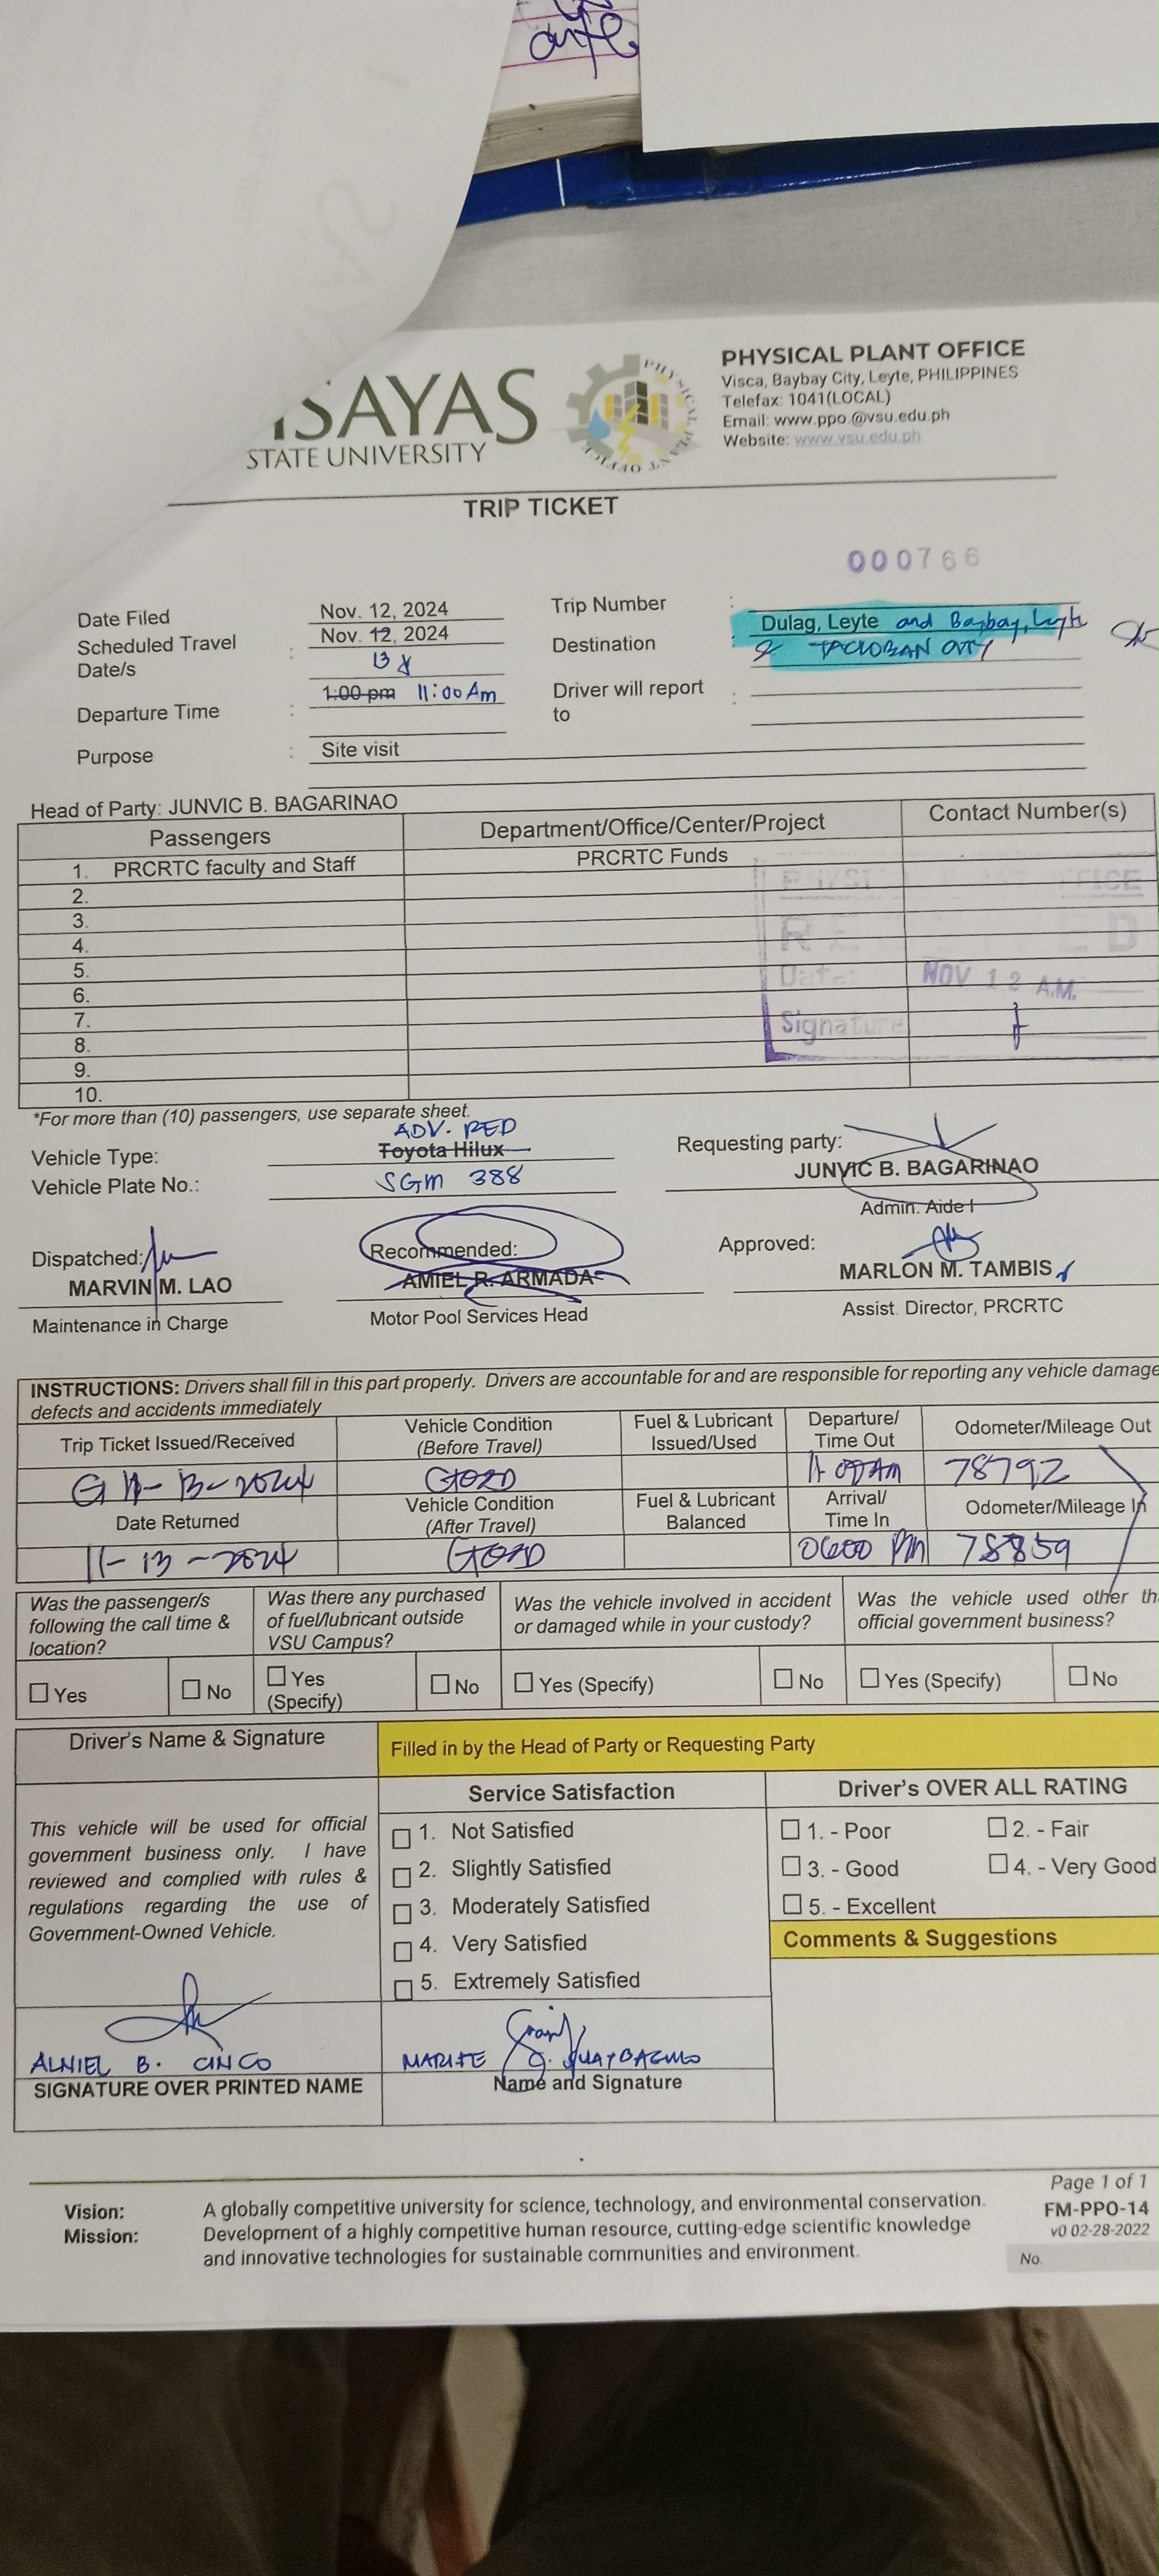 ISAYAS
STATE UNIVERSITY
PHYSICAL PLANT OFFICE
PHYSICAL PLANT OFFICE
Visca, Baybay City, Leyte, PHILIPPINES
Telefax: 1041(LOCAL)
Email: www.ppo.@vsu.edu.ph
Website: www.vsu.edu.ph
TRIP TICKET
000766
Date Filed Nov. 12, 2024 Trip Number :
Scheduled Travel Date/s : Nov. 12, 2024 13
Destination : Dulag, Leyte and Baybay, Leyte
& TACLOBAN CITY
Departure Time : 1:00 pm 11:00 Am
Driver will report to :
Purpose : Site visit
Head of Party: JUNVIC B. BAGARINAO
Passengers Department/Office/Center/Project Contact Number(s)
1. PRCRTC faculty and Staff PRCRTC Funds
2.
3.
4.
5.
6.
7.
8.
9.
10.
PHYSICAL PLANT OFFICE
RECEIVED
Date: NOV 12 A.M.
Signature
*For more than (10) passengers, use separate sheet.
ADV. RED
Vehicle Type: Toyota Hilux
Vehicle Plate No.: SGM 388
Requesting party:
JUNVIC B. BAGARINAO
Admin. Aide I
Dispatched:
MARVIN M. LAO
Maintenance in Charge
Recommended:
AMIEL R. ARMADA
Motor Pool Services Head
Approved:
MARLON M. TAMBIS
Assist. Director, PRCRTC
INSTRUCTIONS: Drivers shall fill in this part properly. Drivers are accountable for and are responsible for reporting any vehicle damage
defects and accidents immediately
Trip Ticket Issued/Received Vehicle Condition (Before Travel) Fuel & Lubricant Issued/Used Departure/ Time Out Odometer/Mileage Out
13-2024 GOOD 11:00Am 78792
Date Returned Vehicle Condition (After Travel) Fuel & Lubricant Balanced Arrival/ Time In Odometer/Mileage In
11-13-2024 GOOD 0600 PM 78859
Was the passenger/s following the call time & location?
☐ Yes ☐ No
Was there any purchased of fuel/lubricant outside VSU Campus?
☐ Yes (Specify) ☐ No
Was the vehicle involved in accident or damaged while in your custody?
☐ Yes (Specify) ☐ No
Was the vehicle used other th
official government business?
☐ Yes (Specify) ☐ No
Driver's Name & Signature
Filled in by the Head of Party or Requesting Party
This vehicle will be used for official
government business only. I have
reviewed and complied with rules &
regulations regarding the use of
Government-Owned Vehicle.
Service Satisfaction
☐ 1. Not Satisfied
☐ 2. Slightly Satisfied
☐ 3. Moderately Satisfied
☐ 4. Very Satisfied
☐ 5. Extremely Satisfied
Driver's OVER ALL RATING
☐ 1. - Poor ☐ 2. - Fair
☐ 3. - Good ☐ 4. - Very Good
☐ 5. - Excellent
Comments & Suggestions
ALNIEL B. CINCO
SIGNATURE OVER PRINTED NAME
MARIFE
Name and Signature
Page 1 of 1
FM-PPO-14
v0 02-28-2022
No.
Vision: A globally competitive university for science, technology, and environmental conservation.
Mission: Development of a highly competitive human resource, cutting-edge scientific knowledge
and innovative technologies for sustainable communities and environment.